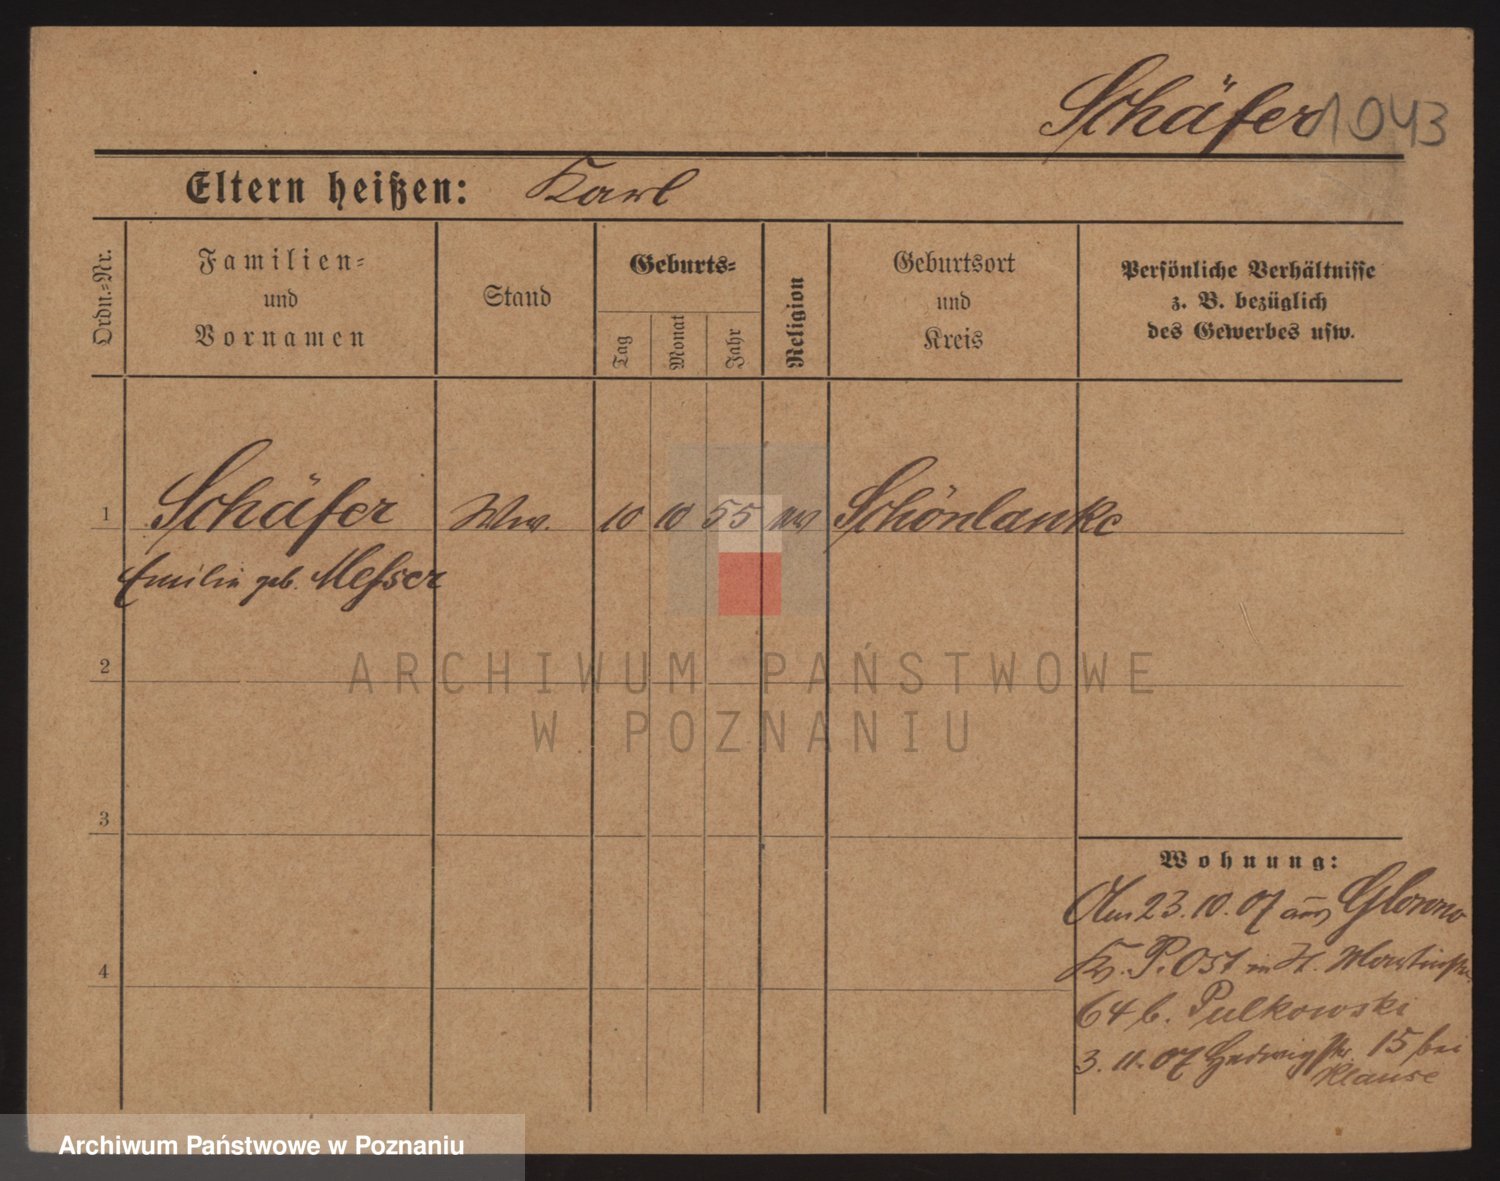 Schäfer 1043
Eltern heißen: Karl
Ordn.-Nr.
Familien-
und
Vornamen
Stand
Geburts-
Tag
Monat
Jahr
Religion
Geburtsort
und
Kreis
Persönliche Verhältnisse
z. B. bezüglich
des Gewerbes usw.
1 Schäfer Ww. 10 10 55 Schönlanke
Emilie geb. Messer
2
3
4
Wohnung:
Am 23.10.07 aus Glowno
Kr. P. Ost in St. Martinstr.
64 b. Pulkowski
3.11.07 Hedwigstr. 15 bei
Klause
ARCHIWUM PAŃSTWOWE
W POZNANIU
Archiwum Państwowe w Poznaniu